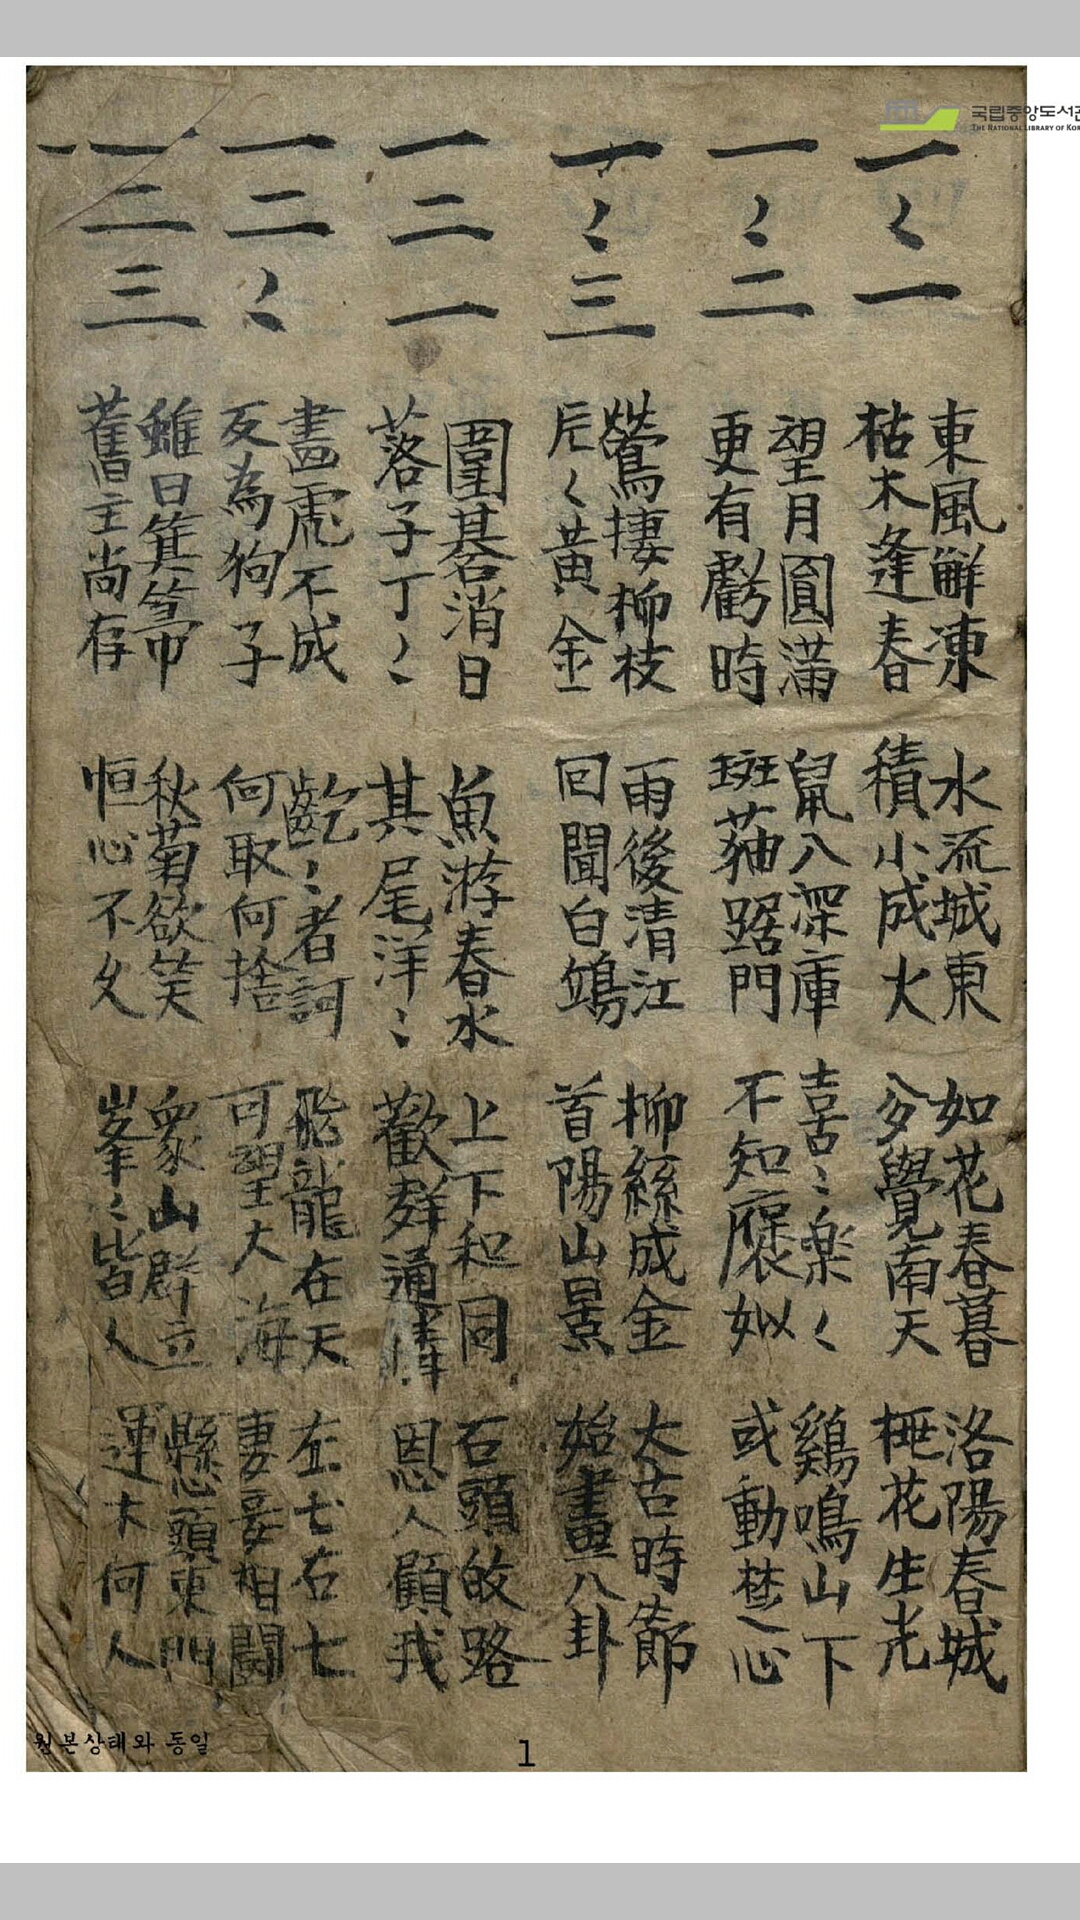 국립중앙도서관
THE NATIONAL LIBRARY OF KOR
一〻一
東風觧凍
枯木逢春
水流城東
積小成大
如花春暮
覺南天
洛陽春城
梅花生光
一〻二
望月圓滿
更有虧時
鼠入深庫
斑猫踞門
喜〻樂〻
不知褒姒
鷄鳴山下
或動楚心
一〻三
鶯捿柳枝
片〻黃金
雨後清江
回聞白鷗
柳絲成金
首陽山景
太古時節
始畫八卦
一二一
圍碁消日
落子丁〻
魚游春水
其尾洋〻
上下和同
歡群通情
石頭的路
恩人顧我
一二〻
畫虎不成
反為狗子
齕〻者訶
何取何捨
飛龍在天
可望大海
左七右七
妻妾相鬪
一二三
雖曰箕箒
舊主尚存
秋菊欲笑
恒心不久
衆山群立
峯〻皆人
懸頭東門
運木何人
원본상태와 동일
1